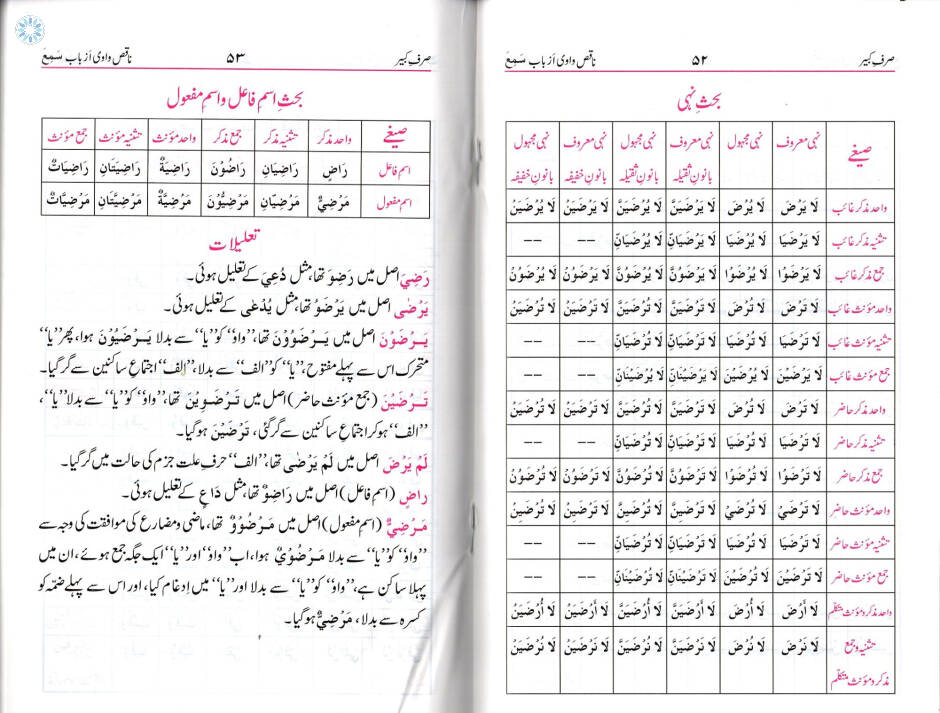 صرفِ کبیر ۵۲ ناقص واوی از باب سَمِعَ
بحثِ نہی
صیغے نہی معروف نہی مجہول نہی معروف بانونِ ثقیلہ نہی مجہول بانونِ ثقیلہ نہی معروف بانونِ خفیفہ نہی مجہول بانونِ خفیفہ
واحد مذکر غائب لَا یَرْضَ لَا یُرْضَ لَا یَرْضَیَنَّ لَا یُرْضَیَنَّ لَا یَرْضَیَنْ لَا یُرْضَیَنْ
تثنیہ مذکر غائب لَا یَرْضَیَا لَا یُرْضَیَا لَا یَرْضَیَانِّ لَا یُرْضَیَانِّ -- --
جمع مذکر غائب لَا یَرْضَوْا لَا یُرْضَوْا لَا یَرْضَوُنَّ لَا یُرْضَوُنَّ لَا یَرْضَوُنْ لَا یُرْضَوُنْ
واحد مؤنث غائب لَا تَرْضَ لَا تُرْضَ لَا تَرْضَیَنَّ لَا تُرْضَیَنَّ لَا تَرْضَیَنْ لَا تُرْضَیَنْ
تثنیہ مؤنث غائب لَا تَرْضَیَا لَا تُرْضَیَا لَا تَرْضَیَانِّ لَا تُرْضَیَانِّ -- --
جمع مؤنث غائب لَا یَرْضَیْنَ لَا یُرْضَیْنَ لَا یَرْضَیْنَانِّ -- --
واحد مذکر حاضر لَا تَرْضَ لَا تُرْضَ لَا تَرْضَیَنَّ لَا تُرْضَیَنَّ لَا تَرْضَیَنْ لَا تُرْضَیَنْ
تثنیہ مذکر حاضر لَا تَرْضَیَا لَا تُرْضَیَا لَا تَرْضَیَانِّ لَا تُرْضَیَانِّ -- --
جمع مذکر حاضر لَا تَرْضَوْا لَا تُرْضَوْا لَا تَرْضَوُنَّ لَا تُرْضَوُنَّ لَا تَرْضَوُنْ لَا تُرْضَوُنْ
واحد مؤنث حاضر لَا تَرْضَیْ لَا تُرْضَیْ لَا تَرْضَیِنَّ لَا تُرْضَیِنَّ لَا تَرْضَیِنْ لَا تُرْضَیِنْ
تثنیہ مؤنث حاضر لَا تَرْضَیَا لَا تُرْضَیَا لَا تَرْضَیَانِّ لَا تُرْضَیَانِّ -- --
جمع مؤنث حاضر لَا تَرْضَیْنَ لَا تُرْضَیْنَ لَا تَرْضَیْنَانِّ لَا تُرْضَیْنَانِّ -- --
واحد مذکر و مؤنث متکلم لَا أَرْضَ لَا أُرْضَ لَا أَرْضَیَنَّ لَا أُرْضَیَنَّ لَا أَرْضَیَنْ لَا أُرْضَیَنْ
تثنیہ و جمع لَا نَرْضَ لَا نُرْضَ لَا نَرْضَیَنَّ لَا نُرْضَیَنَّ لَا نَرْضَیَنْ لَا نُرْضَیَنْ
مذکر و مؤنث متکلم
صرفِ کبیر ۵۳ ناقص واوی از باب سَمِعَ
بحثِ اسمِ فاعل و اسمِ مفعول
صیغے واحد مذکر تثنیہ مذکر جمع مذکر واحد مؤنث تثنیہ مؤنث جمع مؤنث
اسمِ فاعل رَاضٍ رَاضِیَانِ رَاضُوْنَ رَاضِیَةٌ رَاضِیَتَانِ رَاضِیَاتٌ
اسمِ مفعول مَرْضِیٌّ مَرْضِیَّانِ مَرْضِیُّوْنَ مَرْضِیَّةٌ مَرْضِیَّتَانِ مَرْضِیَّاتٌ
تعلیلات
رَضِيَ اصل میں رَضِوَ تھا، مثل دُعِيَ کے تعلیل ہوئی۔
یَرْضٰی اصل میں یَرْضَوُ تھا، مثل یُدْعٰی کے تعلیل ہوئی۔
یَرْضَوْنَ اصل میں یَرْضَوُوْنَ تھا، ’’واو‘‘ کو ’’یا‘‘ سے بدلا یَرْضَیُوْنَ ہوا، پھر ’’یا‘‘
متحرک اس سے پہلے مفتوح، ’’یا‘‘ کو ’’الف‘‘ سے بدلا، ’’الف‘‘ اجتماعِ ساکنین سے گر گیا۔
تَرْضَیْنَ (جمع مؤنث حاضر) اصل میں تَرْضَوِیْنَ تھا، ’’واؤ‘‘ کو ’’یا‘‘ سے بدلا ’’یا‘‘،
’’الف‘‘ ہو کر اجتماعِ ساکنین سے گر گئی، تَرْضَیْنَ ہو گیا۔
لَمْ یَرْضَ اصل میں لَمْ یَرْضٰی تھا، ’’الف‘‘ حرفِ علت جزم کی حالت میں گر گیا۔
رَاضٍ (اسمِ فاعل) اصل میں رَاضِوٌ تھا، مثل دَاعٍ کے تعلیل ہوئی۔
مَرْضِیٌّ (اسمِ مفعول) اصل میں مَرْضُوْوٌ تھا، ماضی و مضارع کی موافقت کی وجہ سے
’’واؤ‘‘ کو ’’یا‘‘ سے بدلا مَرْضُوْیٌ ہوا، اب ’’واؤ‘‘ اور ’’یا‘‘ ایک جگہ جمع ہوئے، ان میں
پہلا ساکن ہے، ’’واؤ‘‘ کو ’’یا‘‘ سے بدلا اور ’’یا‘‘ میں اِدغام کیا، اور اس سے پہلے ضمّہ کو
کسرہ سے بدلا، مَرْضِیٌّ ہو گیا۔